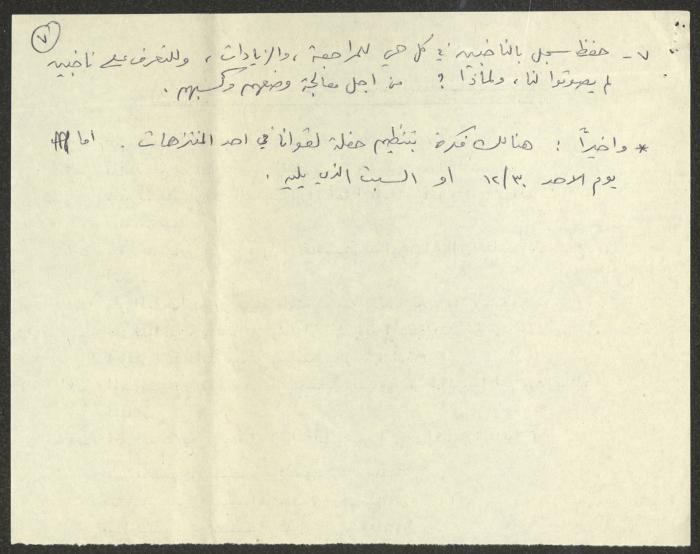 ٧
٧ - حفظ سجل بالناخبين في كل حي للمراجعة، والزيادات، وللتعرف على ناخبين
لم يصوتوا لنا، ولماذا؟ من اجل معالجة وضعهم وكسبهم.
* واخيراً: هنالك فكرة بتنظيم حفلة لقواتنا في احد المنتزهات. اما
يوم الاحد ١٢/٣٠ او السبت الذي يليه.